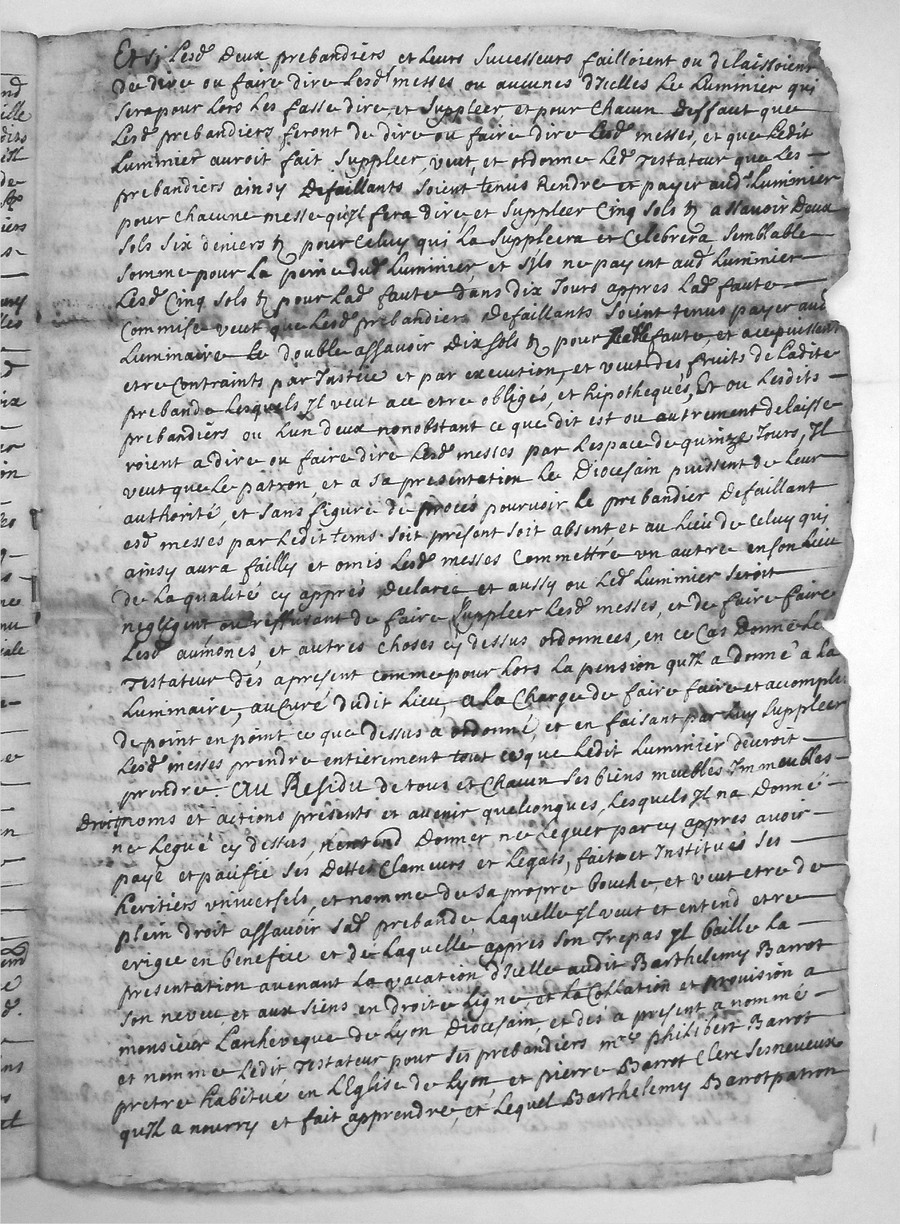 Et si Lesd deux prebandiers et Leurs Successeurs failloient ou delaissoient
De dire ou faire dire Lesd messes ou aucunes d'Icelles Le Luminier qui
Sera pour Lors Les fasse dire et Suppleer et pour Chacun deffaut que
Lesd prebandiers feront de dire ou faire dire Lesd messes, et que Ledit
Luminier auroit fait Suppleer, veut, et ordonne Led Testateur que Les
prebandiers ainsy Defaillants soient tenus Rendre et payer aud Luminier
pour Chacune messe qu'Jl fera dire et Suppleer Cinq Sols tz assavoir Deux
Sols Six deniers tz pour Celuy qui La Suppleera et Celebrera Semblable
Somme pour La peine dud Luminier et S'ils ne payent aud Luminier
Lesd Cinq Sols tz pour Lad faute dans dix Jours appres Lad faute
Commise veut que Lesd prebandiers defaillants Soient tenus payer aud
Luminaire Le double assavoir Dix Sols tz pour faute, et a ce puissent
etre Contraints par Justice et par execution, et veut des fruits de Ladite
prebande Lesquels Jl veut a ce etre obligés, et hipotheques, Et ou Lesdits
prebandiers ou Lun deux nonobstant ce que dit est ou autrement delaisse
roient a dire ou faire dire Lesd messes par Lespace de quinze Jours, Jl
veut que Le patron, et a sa presentation Le Diocesain puissent de Leur
authorité, et sans figure de procés pourvoir Le prebandier defaillant
esd messes par Ledit tems soit present soit absent et au Lieu de Celuy qui
ainsy aura failly et omis Lesd messes Commettre un autre en son Lieu
de La qualité cy apprés declarée et aussy ou Led Luminier seroit
negligent ou reffusant de faire Suppleer Lesd messes, et de faire faire
Lesd aumônes, et autres choses cy dessus ordonnees, en ce Cas Donne Le
Testateur des apresent comme pour Lors La pension qu'Jl a donné a La
Luminaire, au Curé dudit Lieu, a La Charge de faire faire et accomplir
de point en point ce que dessus a ordonné, et en faisant par Luy Suppleer
Lesd messes prendre entierement tout ce que Ledit Luminier devroit
prendre. Au Residu de tous et Chacun Ses biens meubles Immeubles
Droits noms et actions présents et avenir quelconques, Lesquels Jl na Donné
ne Legué cy dessus, nentend Donner ne Leguer par cy appres avoir
payé et pacifié Ses Dettes Clameurs et Legats, fait et Institue Ses
heritiers universels, et nomme de Sa propre bouche, et veut etre de
plein droit assavoir Sad prebande Laquelle Jl veut et entend etre
erigée en benefice et de Laquelle appres Son Trepas Jl baille La
presentation avenant La vacation d'Jcelle audit Barthelemy Barrot
Son neveu, et aux siens en droite Ligne et La Collation et provision a
monsieur Larcheveque de Lyon Diocesain, et des a present a nommé
et nomme Ledit Testateur pour Ses prebandiers mre Philibert Barrot
pretre habitué en L'Eglise de Lyon, et pierre Barrot Clerc Ses neveux
qu'Jl a nourry et fait apprendre, et Lequel Barthelemy Barrot patron